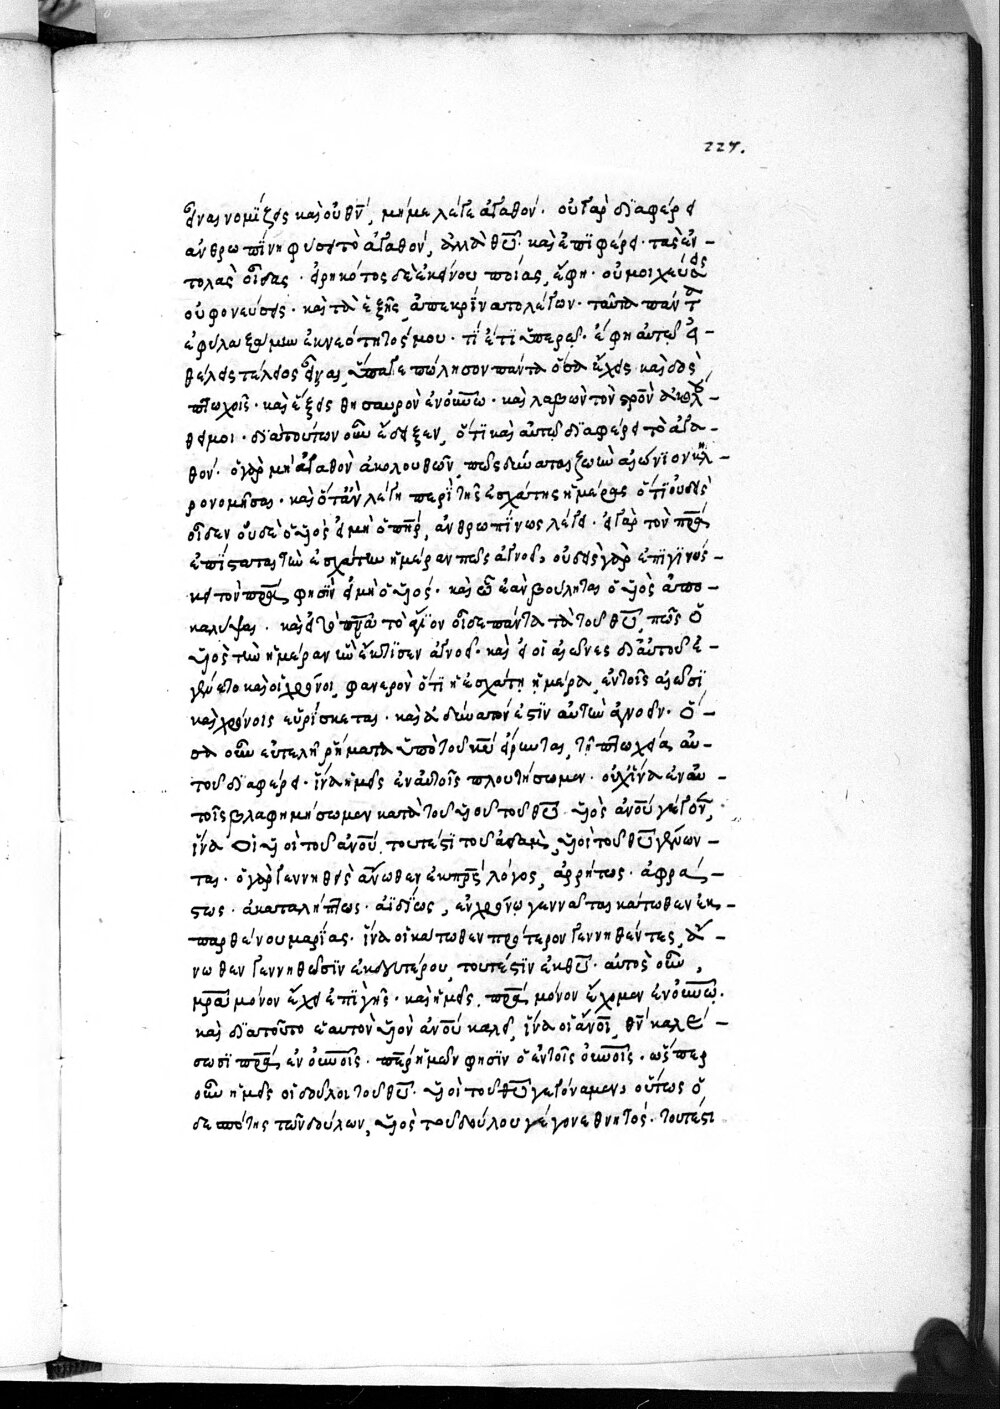 227.
εἶναι νομίζεις καὶ οὐ θν̄, μή με λέγε ἀγαθόν. οὐ γὰρ διαφέρει
ἀνθρωπίνη φύσει τὸ ἀγαθόν, ἀλλὰ θῶ. καὶ ἐπιφέρει. τὰς ἐν-
τολὰς οἶδας. εἰρηκότος δὲ ἐκείνου ποίας, ἔφη. οὐ μοιχεύσεις
οὐ φονεύσεις. καὶ τὰ ἑξῆς, ἀπεκρίνατο λέγων. ταῦτα πάντα
ἐφυλαξάμην ἐκ νεότητός μου. τί ἔτι ὑστερῶ. ἔφη αὐτῶ εἰ
θέλεις τέλειος εἶναι, ὕπαγε πώλησον πάντα ὅσα ἔχεις καὶ δὸς
πτωχοῖς. καὶ ἕξεις θησαυρὸν ἐν οὐνῶ. καὶ λαβὼν τὸν σρὸν ἀκολού-
θει μοι. διὰ τούτων οὖν ἔδειξεν, ὅτι καὶ αὐτῶ διαφέρει τὸ ἀγα-
θόν. ὁ γὰρ μὴ ἀγαθὸν ἀκολουθῶν, πῶς δύναται ζωὴν αἰώνιον κλη-
ρονομῆσαι. καὶ ὅταν λέγη περὶ τῆς ἐσχάτης ἡμέρας ὅτι οὐδεὶς
οἶδεν οὐδὲ ὁ υἱὸς εἰ μὴ ὁ πηρ, ἀνθρωπίνως λέγει. εἰ γὰρ τὸν πρα
ἐπίσταται τὴν ἐσχάτην ἡμέραν πῶς ἀγνοεῖ, οὐδεὶς γὰρ ἐπιγινώσ-
κει τὸν πρα φησὶν εἰ μὴ ὁ υἱός. καὶ ὧ ἐὰν βούληται ὁ υἱὸς ἀπο-
καλύψαι. καὶ εἰ τὸ πνα τὸ ἅγιον οἶδε πάντα τὰ τοῦ θῦ, πῶς ὁ
υἱὸς τὴν ἡμέραν ἣν ἔκτισεν ἀγνοεῖ. καὶ εἰ οἱ αἰῶνες δι' αὐτοῦ ἐ-
γένετο καὶ οἱ χρόνοι, φανερὸν ὅτι ἡ ἐσχάτη ἡμέρα, ἐν τοῖς αἰῶσι
καὶ χρόνοις εὑρίσκεται. καὶ ἀδύνατόν ἐστιν αὐτὴν ἀγνοεῖν. ὅ-
σα οὖν εὐτελῆ ῥήματα ὑπὸ τοῦ κυ εἴρηνται, τῆ πτωχεία αὐ-
τοῦ διαφέρει. ἵνα ἡμεῖς ἐν αὐτοῖς πλουτήσωμεν. οὐχ ἵνα ἐν αὐ-
τοῖς βλαφημήσωμεν κατὰ τοῦ υἱοῦ τοῦ θῦ. υἱὸς ἀνου γέγονεν,
ἵνα οἱ υἱοὶ τοῦ ἀνου, τουτέστι τοῦ ἀδὰμ, υἱοὶ τοῦ θῦ γένων-
ται. ὁ γὰρ γεννηθεὶς ἄνωθεν ἐκ πρς λόγος, ἀρρήτως. ἀφρά-
στως. ἀκαταλήπτως. ἀϊδίως, ἐν χρόνω γεννᾶται κάτωθεν ἐκ
παρθένου μαρίας. ἵνα οἱ κάτωθεν πρότερον γεννηθέντες, ἄ-
νωθεν γεννηθῶσιν ἐκ δευτέρου, τουτέστιν ἐκ θῦ. αὐτὸς οὖν,
μρα μόνον ἔχει ἐπὶ γῆς. καὶ ἡμεῖς, πρα μόνον ἔχομεν ἐν οὐνῶ.
καὶ διὰ τοῦτο ἑαυτὸν υἱὸν ἀνου καλεῖ, ἵνα οἱ ἀνοι, θν καλέ-
σωσι πρα ἐν οὐνοῖς. πηρ ἡμῶν φησὶν ὁ ἐν τοῖς οὐνοῖς. ὥσπερ
οὖν ἡμεῖς οἱ δοῦλοι τοῦ θῦ. υἱοὶ τοῦ θῦ γεγόναμεν, οὕτως ὁ
δεσπότης τῶν δούλων, υἱὸς τοῦ δούλου γέγονε θνητός. τουτέστι